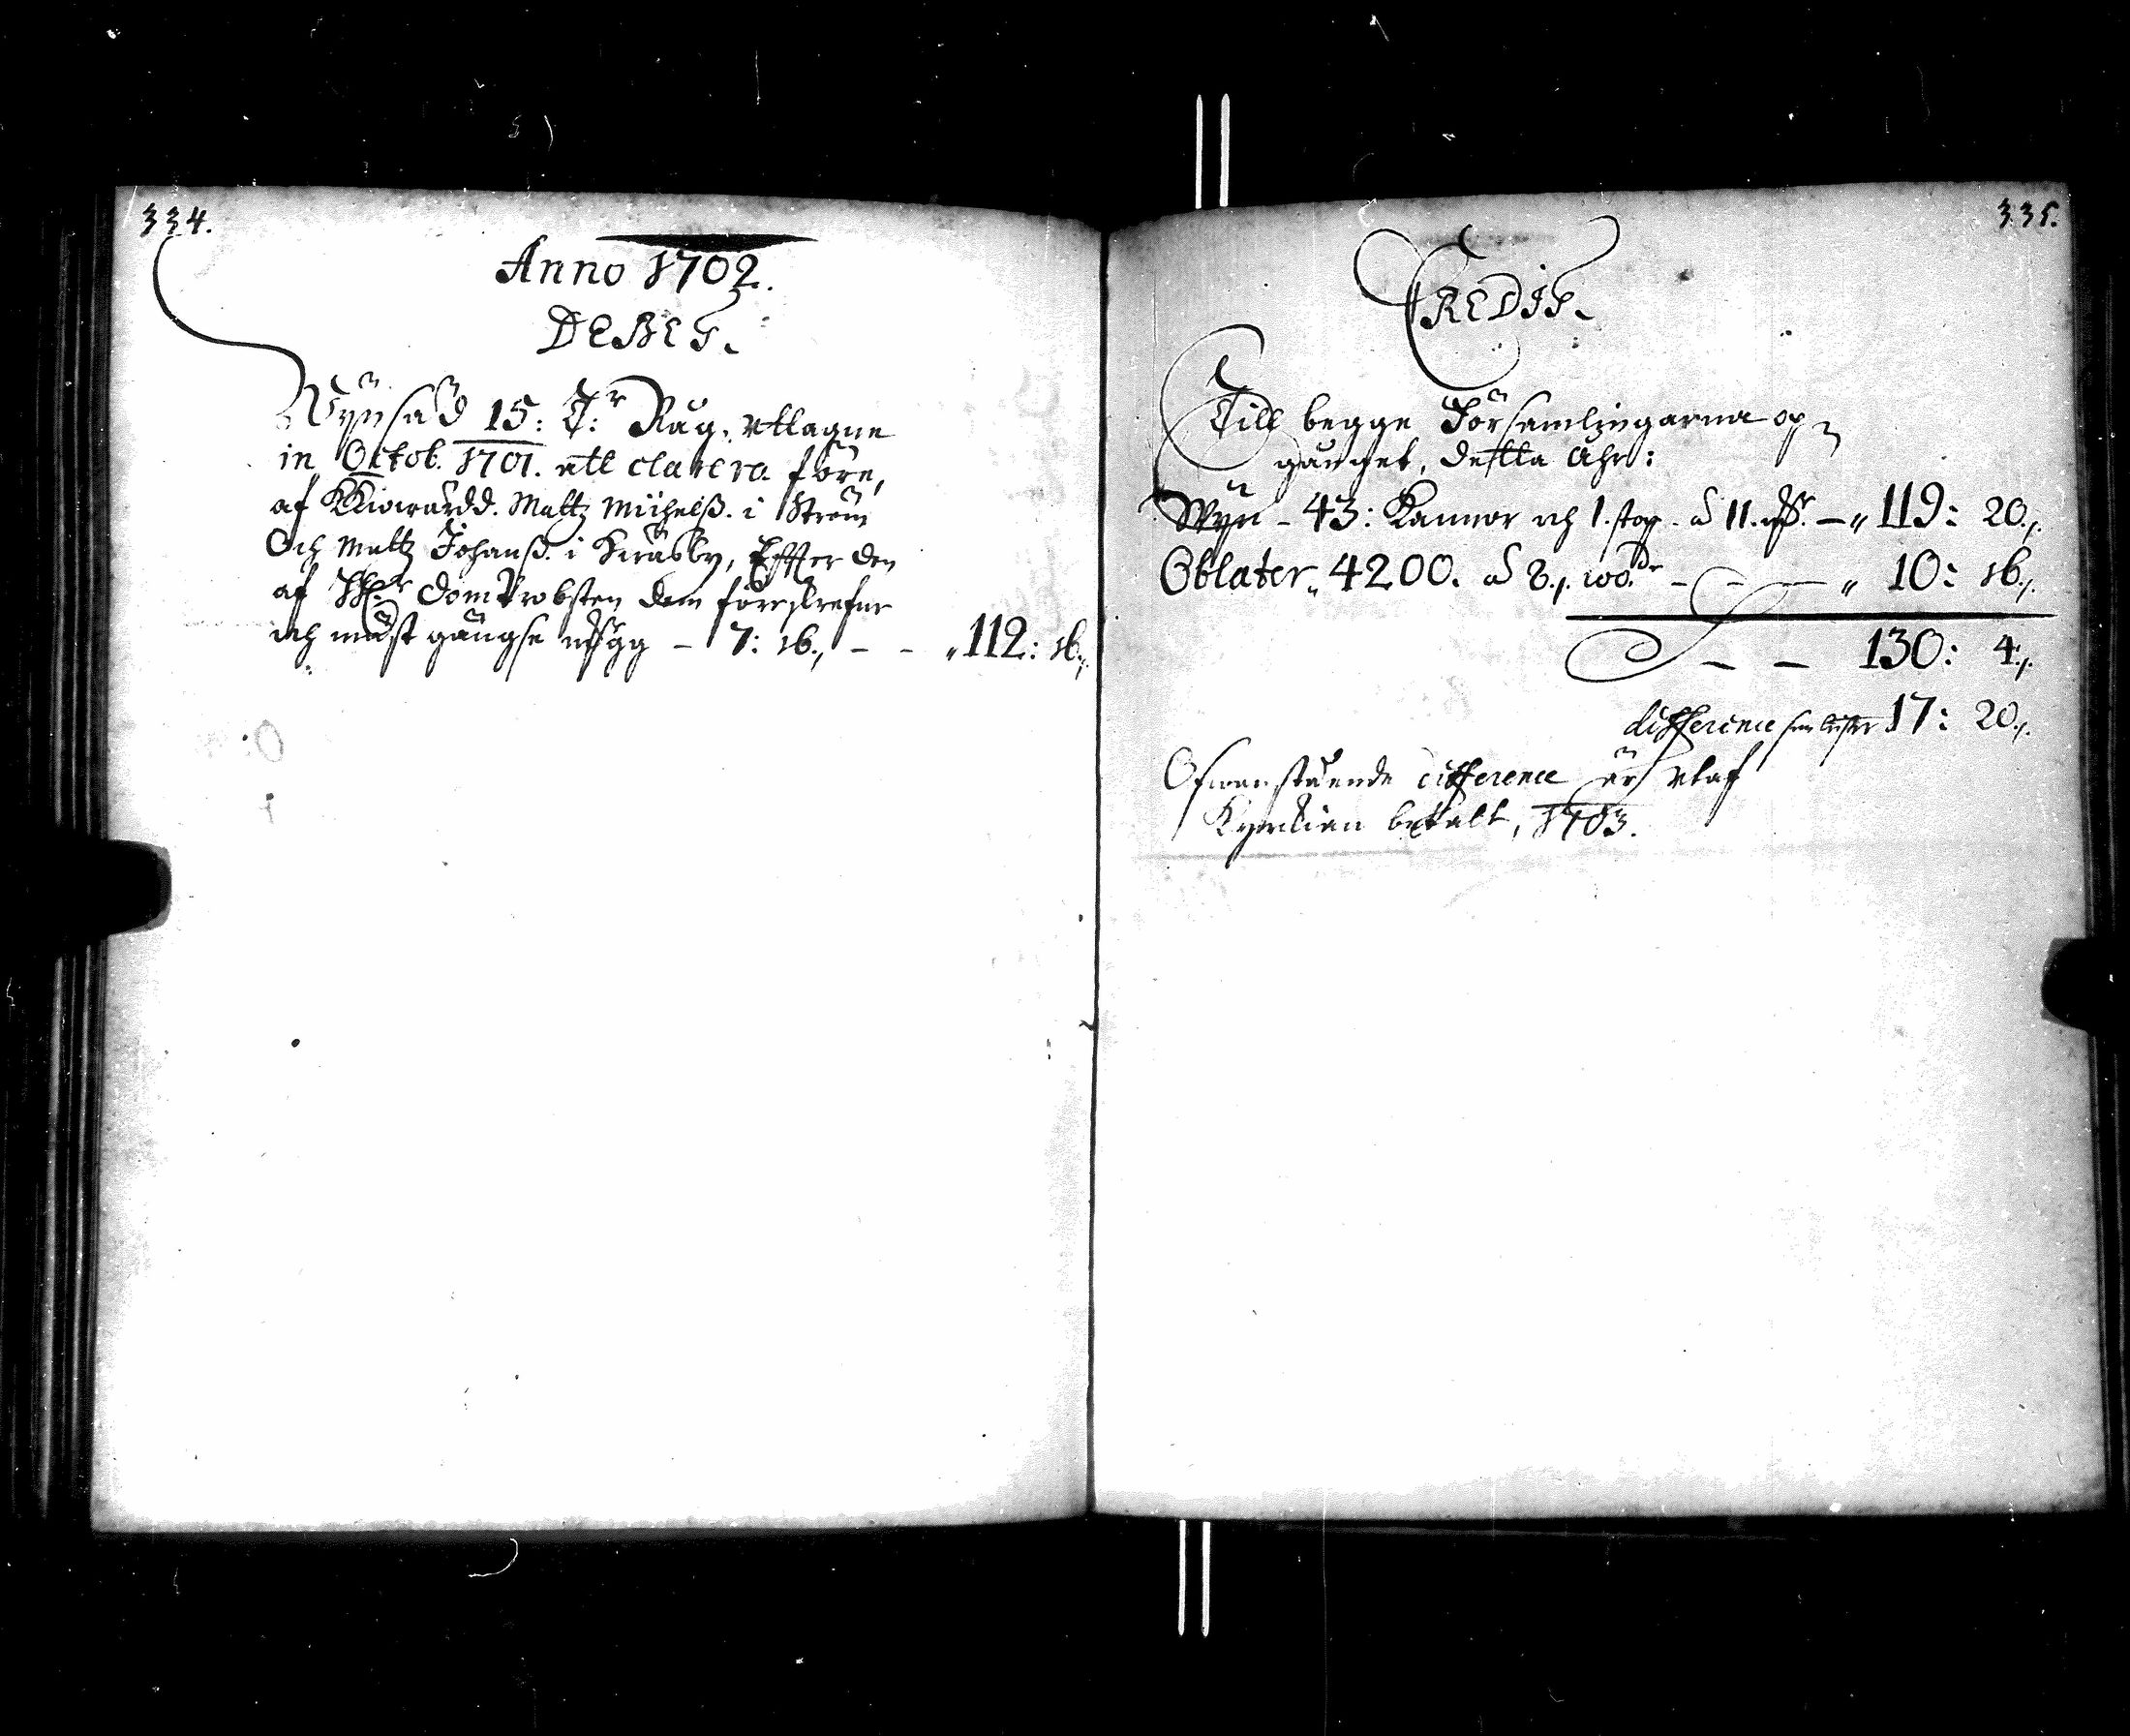 334.
Anno 1702.
DEBET.
Wynsäd 15: T:r Råg, uttagne
in Octob. 1701. att clarera före,
af KKiowärdd. Mattz Michelß. i Ström
Och Mattz Johanß. i Kråsby, Effter den
af HH:r DomProbsten dem föreskrefne
och mäst gängse 7: 16., - - " 112: 16./.
335.
CREDIT.
Till begge Församlingarna op-
gånget, detta Åhr:
Wyn - 43: Kannor och 1. stop - á 11. - " 119: 20./.
Oblater " 4200. á 8./. - - - " 10: 16./.
- - 130: 4./.
difference 17: 20./.
Ofwanstående difference är utaf
Kyrkian betalt, 1703.